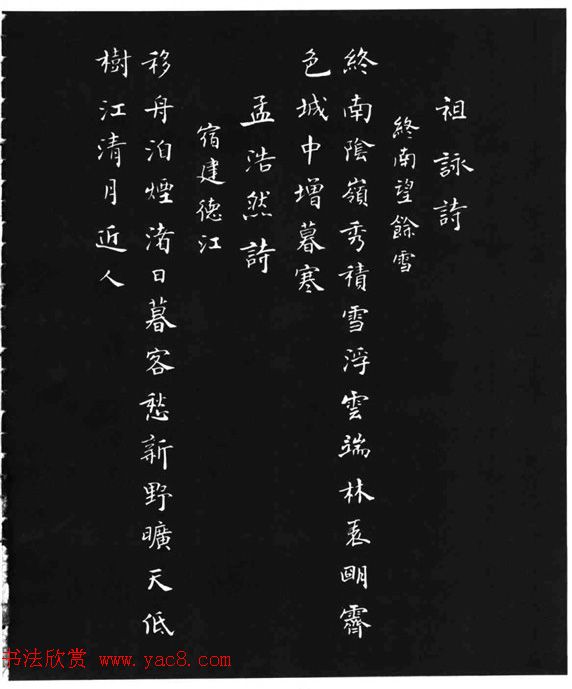 祖詠詩
終南望餘雪
終南陰嶺秀積雪浮雲端林表明霽
色城中增暮寒
孟浩然詩
宿建德江
移舟泊煙渚日暮客愁新野曠天低
樹江清月近人
书法欣赏 www.yac8.com